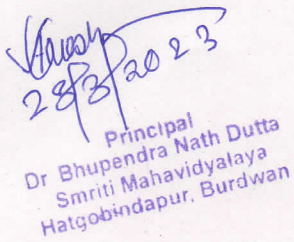 28/3/2023
Principal
Dr Bhupendra Nath Dutta
Smriti Mahavidyalaya
Hatgobindapur, Burdwan